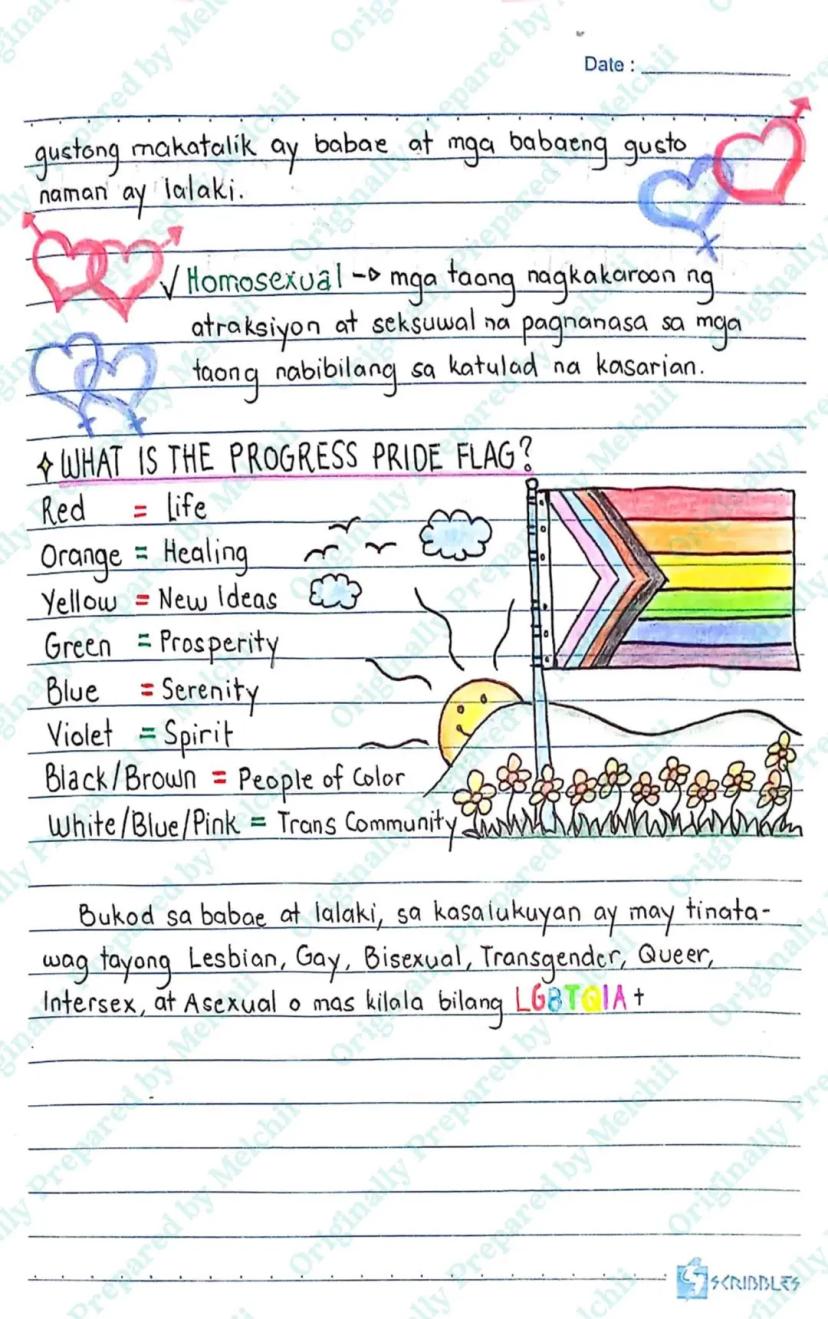 Date :
gustong makatalik ay babae at mga babaeng gusto
naman ay lalaki.
✓ Homosexual -▷ mga taong nagkakaroon ng
atraksiyon at seksuwal na pagnanasa sa mga
taong nabibilang sa katulad na kasarian.
✧ WHAT IS THE PROGRESS PRIDE FLAG?
Red = Life
Orange = Healing
Yellow = New Ideas
Green = Prosperity
Blue = Serenity
Violet = Spirit
Black/Brown = People of Color
White/Blue/Pink = Trans Community
Bukod sa babae at lalaki, sa kasalukuyan ay may tinata-
wag tayong Lesbian, Gay, Bisexual, Transgender, Queer,
Intersex, at Asexual o mas kilala bilang LGBTQIA+
SCRIBBLES
Originally Prepared by Melchii